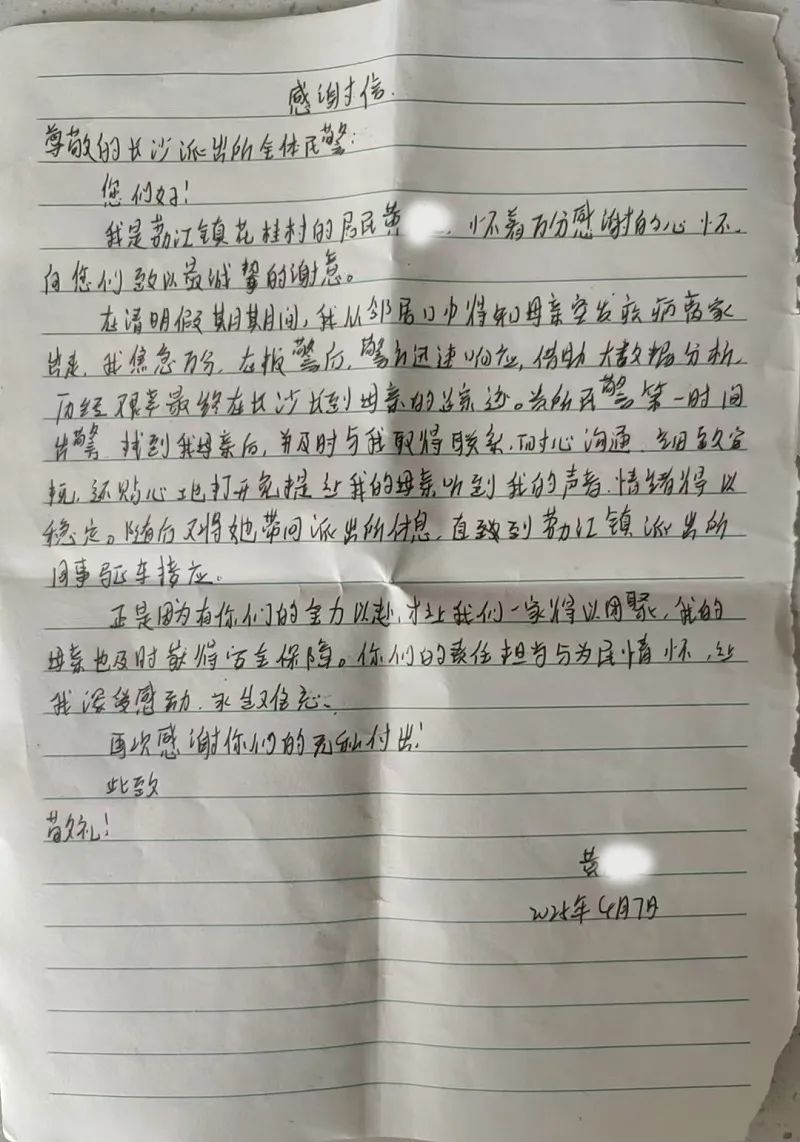 感谢信.
尊敬的长沙派出所全体民警:
您们好!
我是荔江镇花桂村的居民黄 , 怀着万分感谢的心怀,
向您们致以最诚挚的谢意。
在清明假期期间,我从邻居口中得知母亲突发疾病离家
出走,我焦急万分,在报警后,警方迅速响应,借助大数据分析,
历经艰辛最终在长沙找到母亲的踪迹。贵所民警第一时间
出警,找到我母亲后,并及时与我取得联系,耐心沟通,细致安
抚,还贴心地打开免提让我的母亲听到我的声音,情绪得以
稳定。随后又将她带回派出所休息,直致到荔江镇派出所
同事驱车接应。
正是因为有你们的全力以赴,才让我们一家得以团聚,我的
母亲也及时获得安全保障。你们的责任担当与为民情怀,让
我深受感动,永生难忘.
再次感谢你们的无私付出!
此致
敬礼!
黄
2025年4月7日